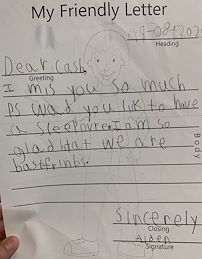 My Friendly Letter
Heading
Dear cash,
Greeting
I mis you so much
PS wad you lik to have
a sleepovre. I am so
glad that we are
bastfrinbs.
Body
Sincerely
Closing
Aiden
Signature